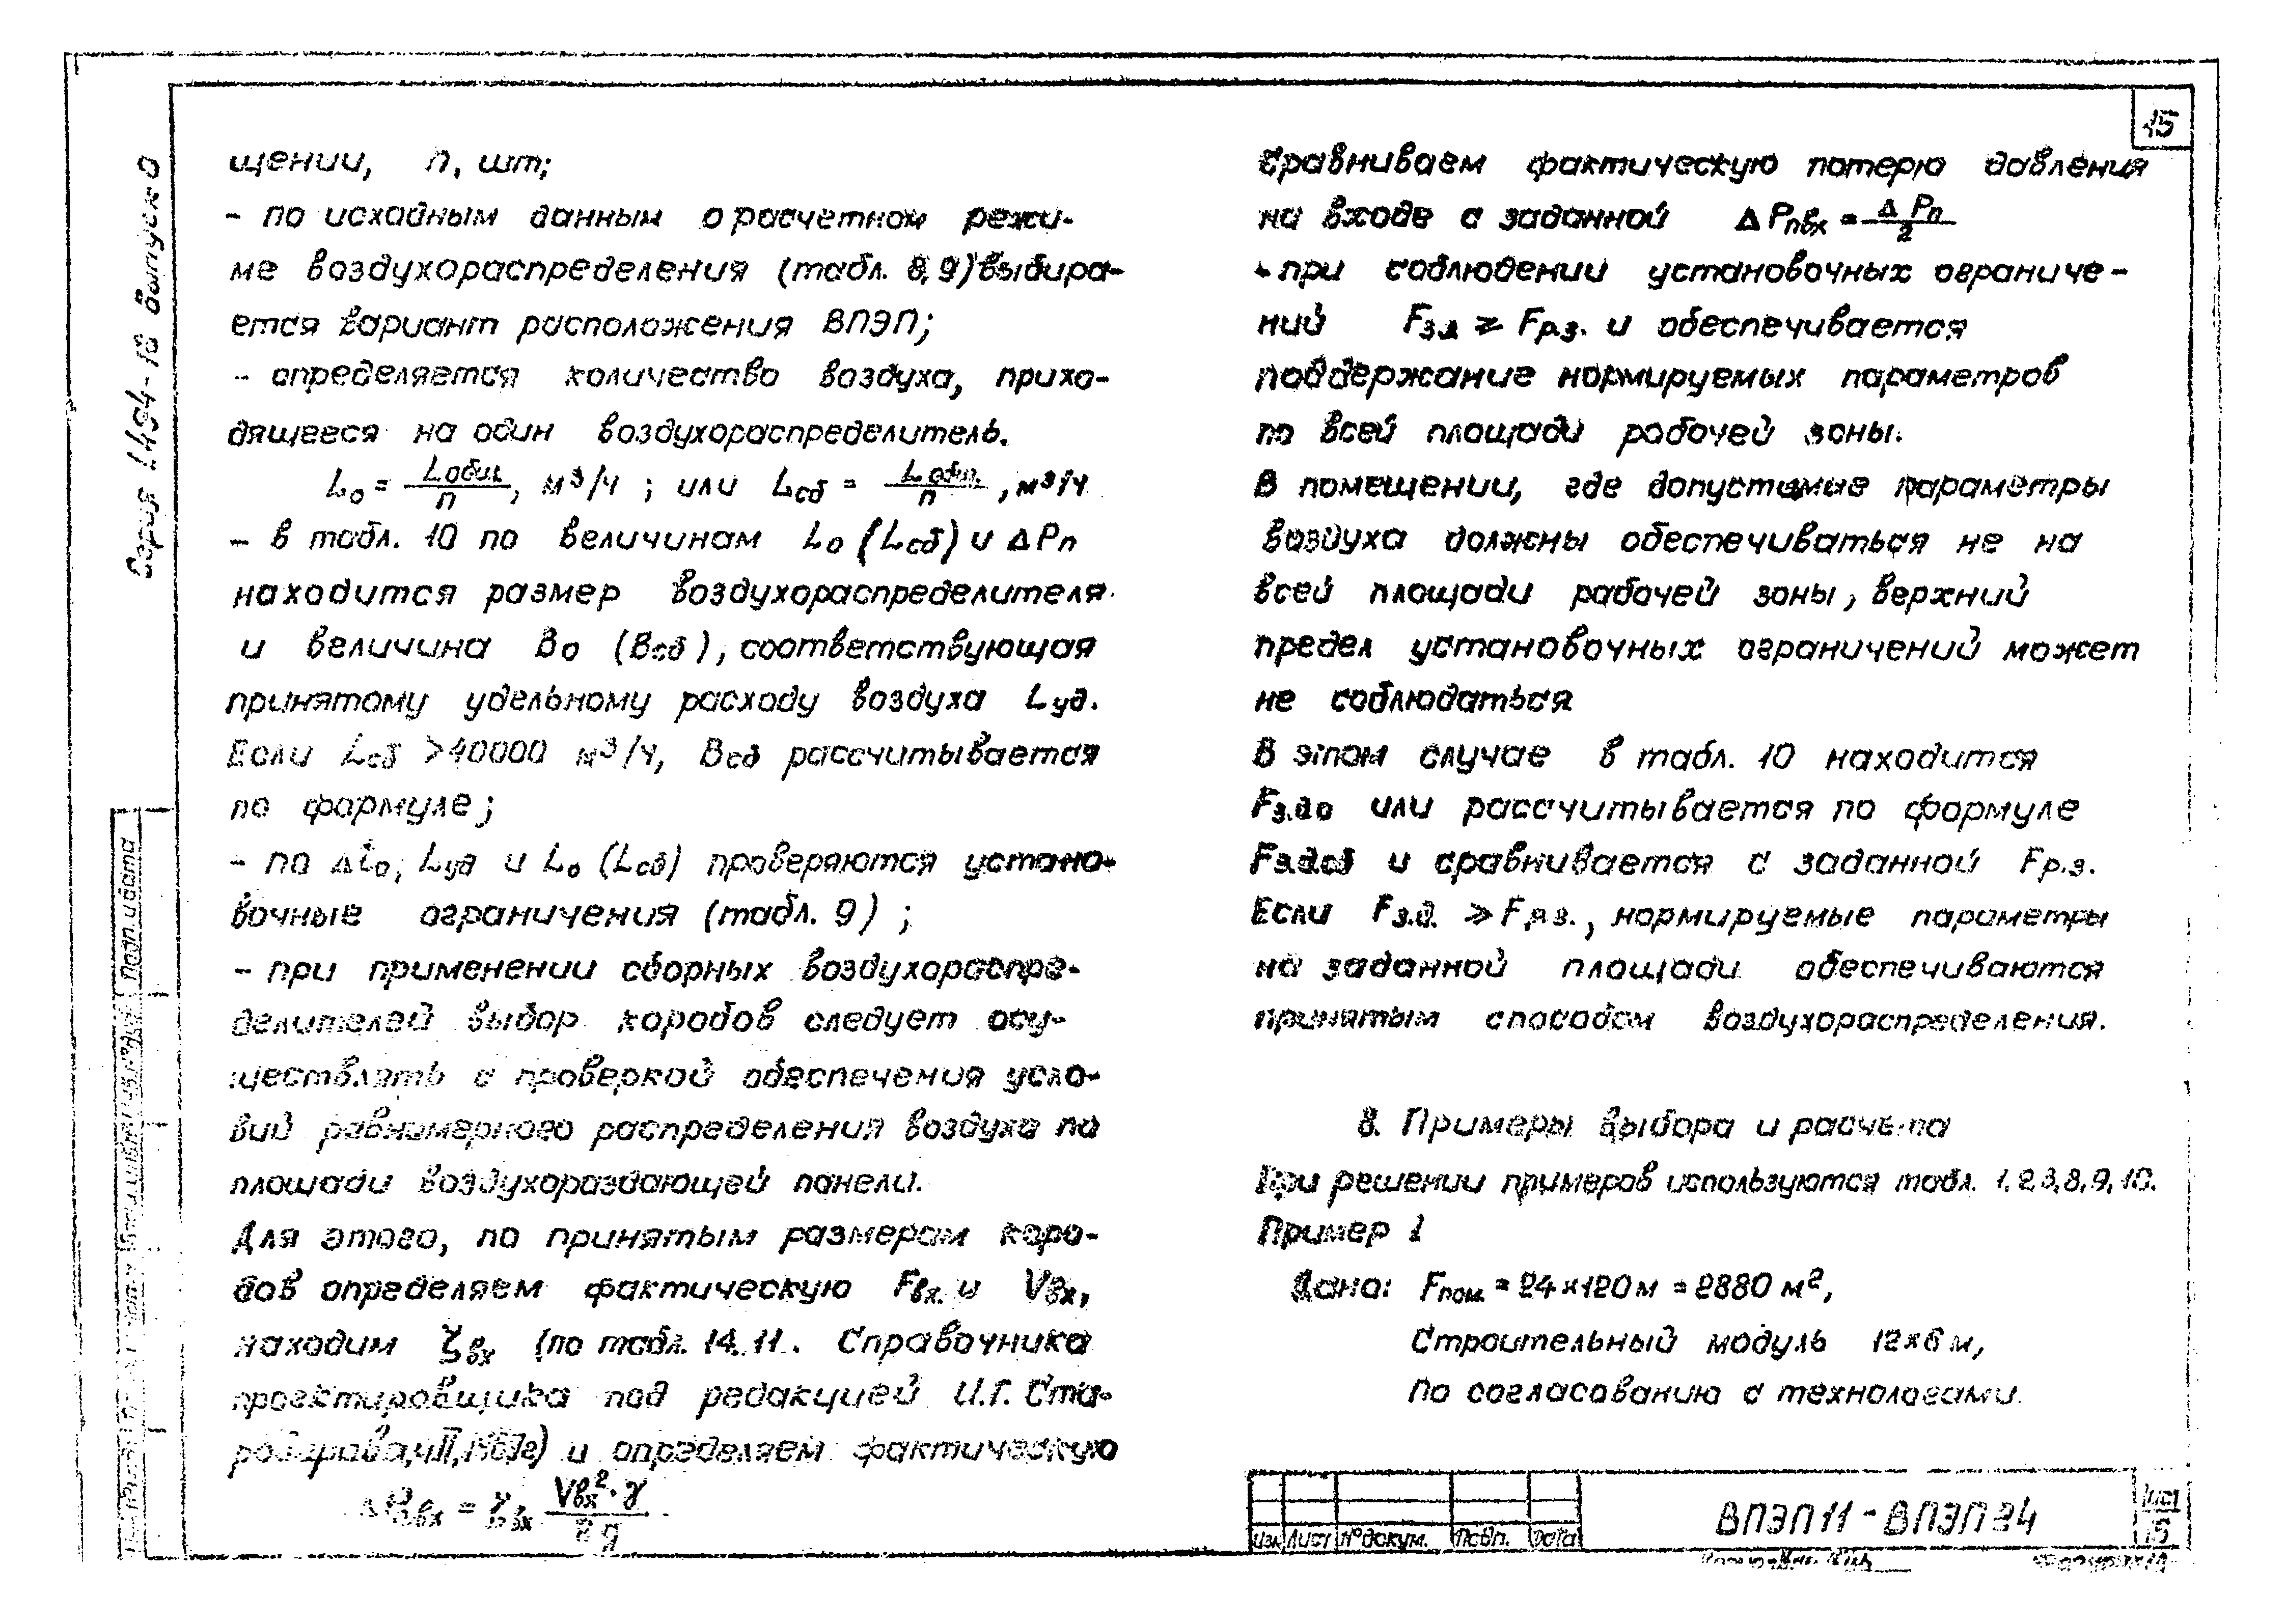 15
Серия 1.494-18 Выпуск 0
щении, n, шт;
- по исходным данным о расчетном режи-
ме воздухораспределения (табл. 8,9) выбира-
ется вариант расположения ВПЭП;
- определяется количество воздуха, прихо-
дящееся на один воздухораспределитель.
Lо = Lобщ./n, м³/ч ; или Lсб = Lобщ./n, м³/ч
- в табл. 10 по величинам Lо (Lсб) и ΔPп
находится размер воздухораспределителя
и величина Bо (Bсб), соответствующая
принятому удельному расходу воздуха Lуд.
Если Lсб >40000 м³/ч, Bсб рассчитывается
по формуле;
- по Δtо, Lуд и Lо (Lсб) проверяются устано-
вочные ограничения (табл. 9) ;
- при применении сборных воздухораспре-
делителей выбор коробов следует осу-
ществлять с проверкой обеспечения усло-
вий равномерного распределения воздуха по
площади воздухораздающей панели.
Для этого, по принятым размерам коро-
бов определяем фактическую Fвх. и Vвх,
находим ζвх (по табл. 14.11. Справочника
проектировщика под редакцией И.Г. Ста-
роверова, ч.II, и определяем фактическую
ΔPпвх = ζвх Vвх²·γ/2g
Сравниваем фактическую потерю давления
на входе с заданной ΔPпвх = ΔPп/2
- при соблюдении установочных ограниче-
ний Fз.д ≥ Fр.з. и обеспечивается
поддержание нормируемых параметров
по всей площади рабочей зоны.
В помещении, где допустимые параметры
воздуха должны обеспечиваться не на
всей площади рабочей зоны, верхний
предел установочных ограничений может
не соблюдаться
В этом случае в табл. 10 находится
Fз.до или рассчитывается по формуле
Fз.дсб и сравнивается с заданной Fр.з.
Если Fз.д. ≥ Fр.з., нормируемые параметры
на заданной площади обеспечиваются
принятым способом воздухораспределения.
8. Примеры выбора и расчета
При решении примеров используются табл. 1,2,3,8,9,10.
Пример 1
Дано: Fпом. = 24×120м = 2880 м²,
Строительный модуль 12×6м,
По согласованию с технологами.
Изм Лист № докум. Подп. Дата
ВПЭП 11 - ВПЭП 24
Лист
15
Подп. и дата